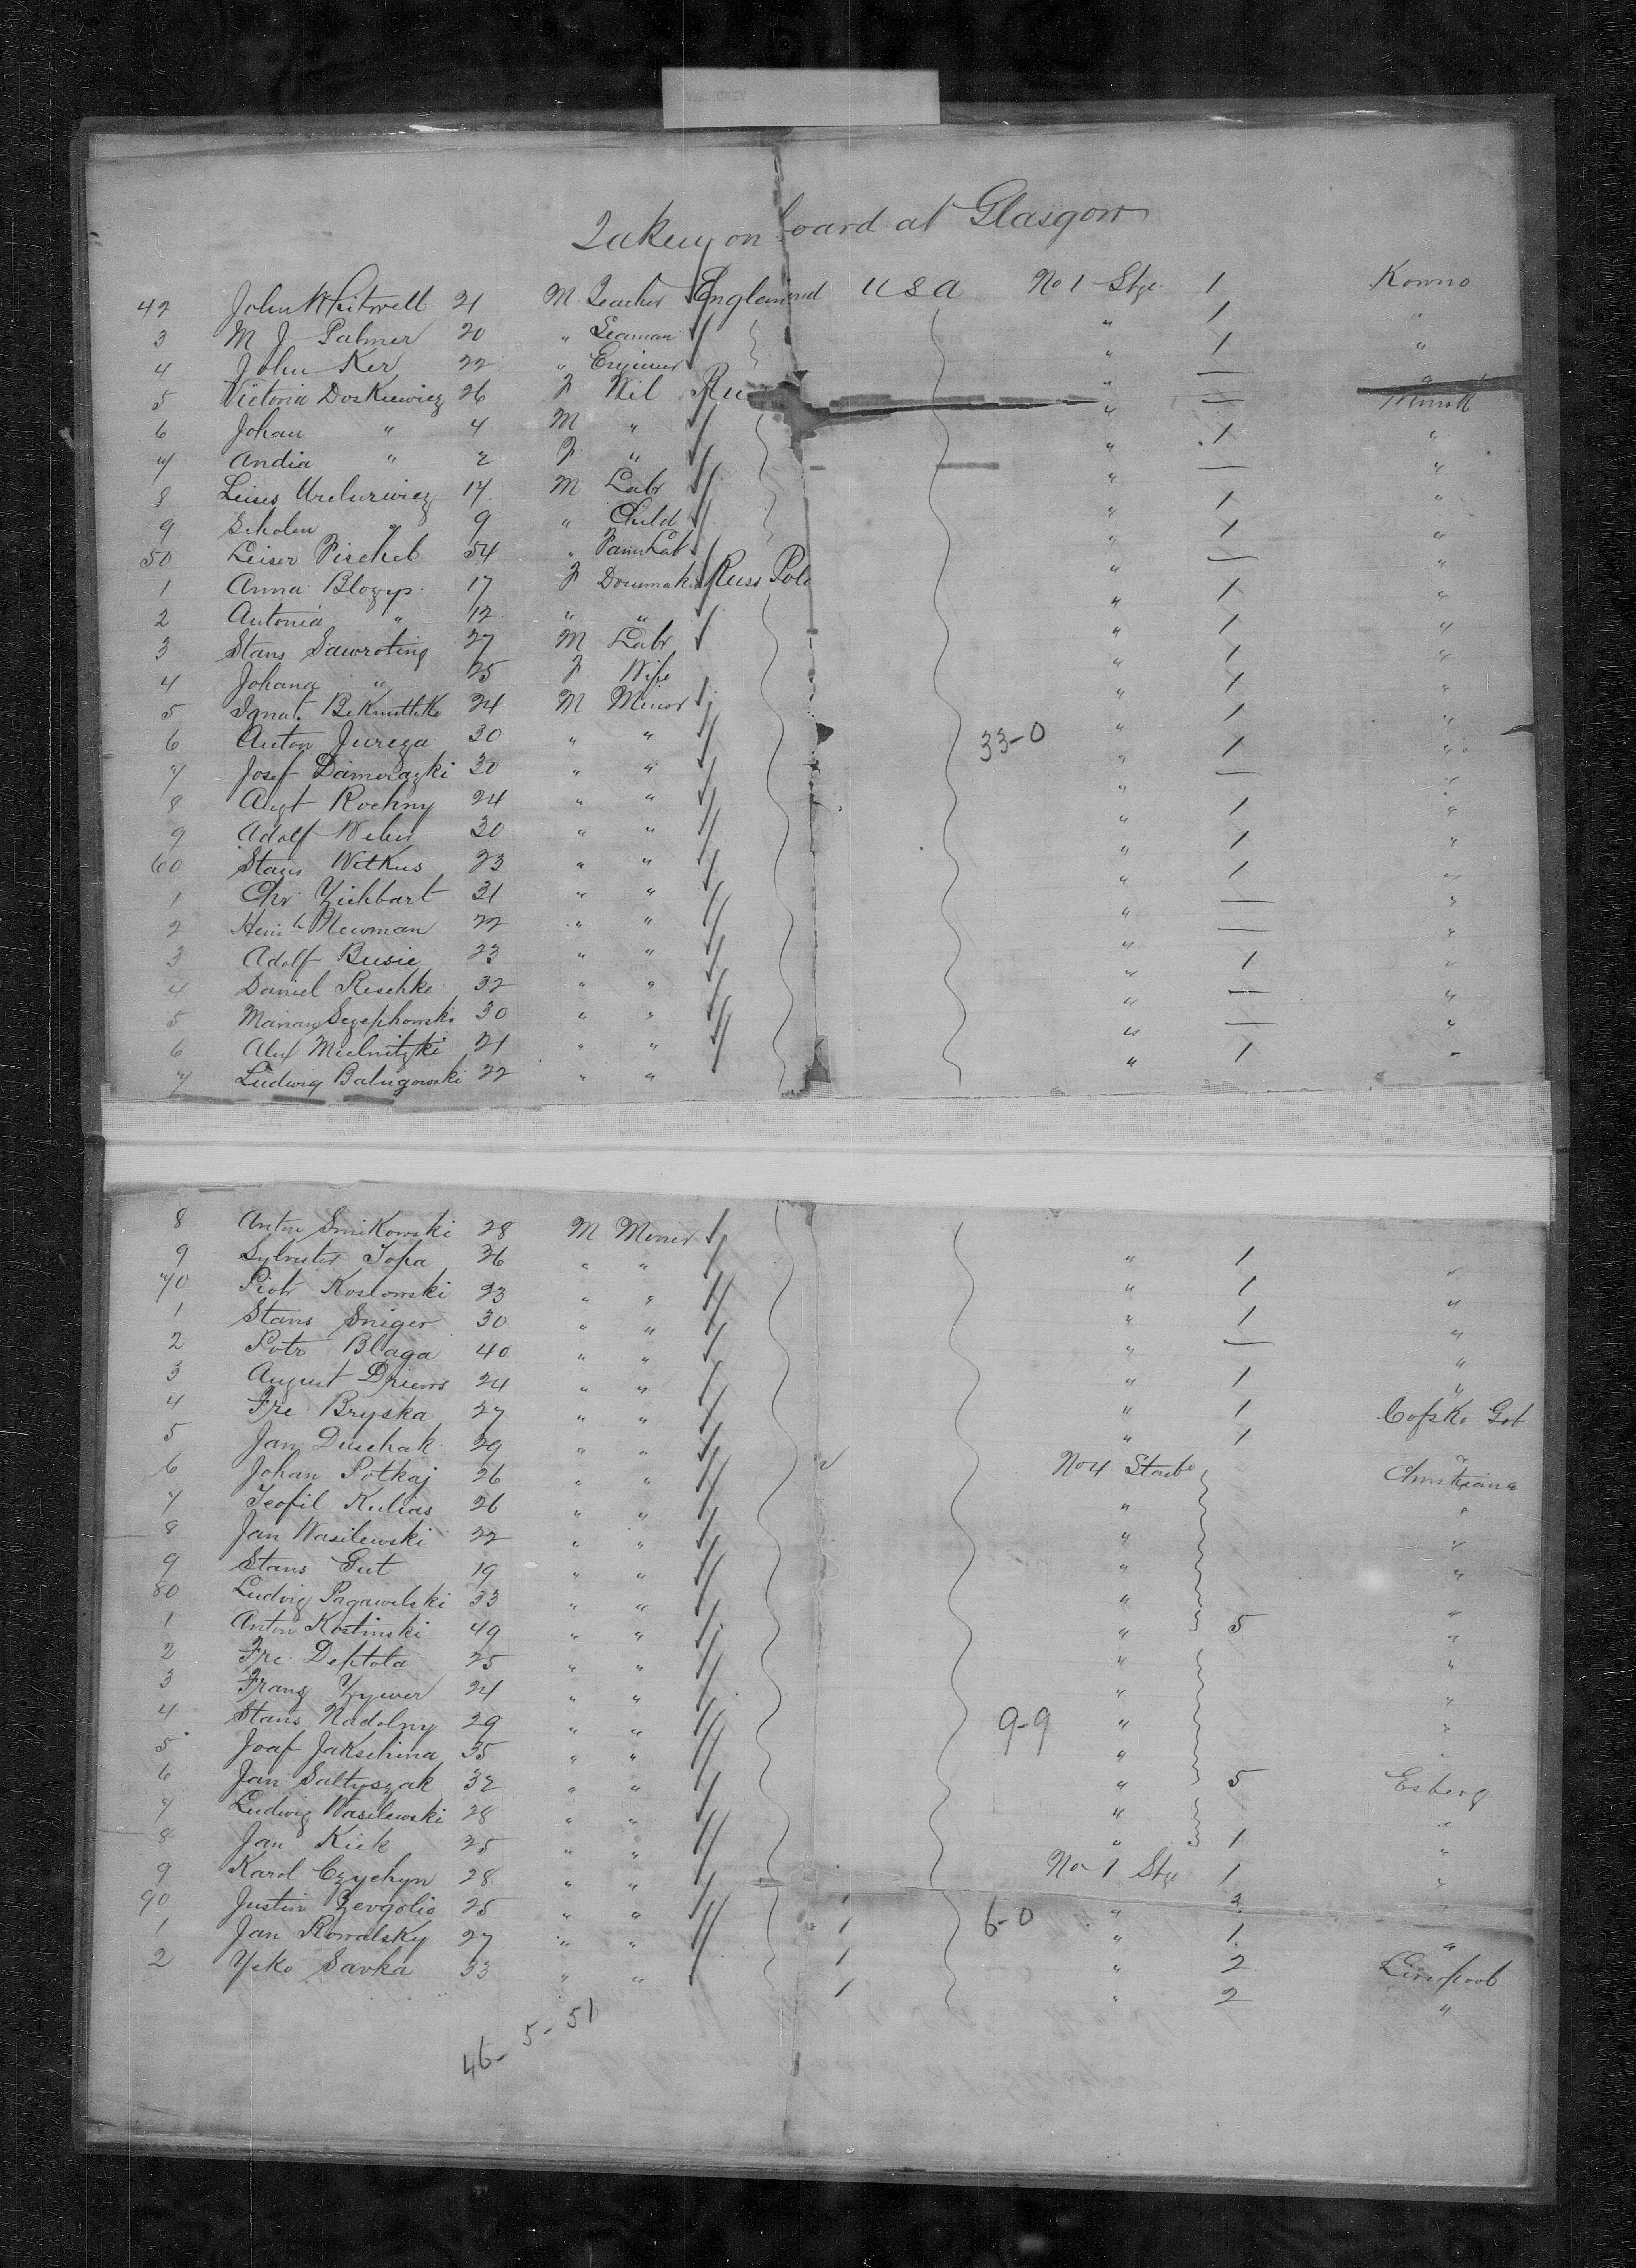 Taken on board at Glasgow
42 John Whitwell 21 M Teacher England USA No 1 Stge 1 Kowno
3 M J Palmer 20 " Seaman " 1 "
4 John Ker 22 " Engineer " 1 "
5 Victoria Doskiewicz 26 F Wil Ru " —
6 Johan " 4 M " " — "
7 Andia " 2 F " " 1 "
8 Leises 17 M Labr " — "
9 Scholem " 9 " Child " 1 "
50 Leiser Fischel 54 " Farm Lab " 1 "
1 Anna Blozys 17 F Dressmaker Russ Pole " — "
2 Antonia " 12 " " " 1 "
3 Stans Sawroting 27 M Labr " 1 "
4 Johana " 25 F Wife " 1 "
5 Ignat. 24 M Minor " 1 "
6 Anton Jurega 30 " " 33-0 " 1 "
7 Josef 30 " " " 1 "
8 Augt Rochny 24 " " " — "
9 Adolf Weber 30 " " " 1 "
60 Stans Witkus 23 " " " 1 "
1 Chr Zichbart 31 " " " 1 "
2 Heinh Newman 22 " " " — "
3 Adolf Busie 23 " " " — "
4 Daniel Reschke 32 " " " 1 "
5 Marian 30 " " " — "
6 Alex Mielnitzki 21 " " " — "
7 Ludwig Balugowski 22 " " " 1 "
8 Anton Smikowski 28 M Miner
9 Sylvester Topa 26 " " " 1 "
70 Piotr Koslowski 23 " " " 1 "
1 Stans Sniger 30 " " " 1 "
2 Potr Blaga 40 " " " — "
3 August Driews 24 " " " 1 "
4 Fre Bryska 27 " " " 1
5 Jan Duschak 29 " " " 1 "
6 Johan Potkaj 26 " " No 4 Christiana
7 Teofil Kulias 26 " " " "
8 Jan Wasilewski 22 " " " "
9 Stans Gut 19 " " " "
80 Ludwig Pagawelski 33 " " "
1 Anton Kostinski 49 " " " 5 "
2 Fre Deptola 25 " " " "
3 Franz Zywer 24 " " " "
4 Stans Nadolny 29 " " 9-9 " "
5 Josf Jakschina 35 " " " "
6 Jan Saltyszak 32 " " " 5 Esberg
7 Ludwig Wasilewski 28 " " " "
8 Jan Kick 25 " " " 1 "
9 Karol Czychyn 28 " " No 1 Stge 1 "
90 Justin Zevgolis 25 " " 1 " 2 "
1 Jan Kowalsky 27 " " 1 6-0 " 1 "
2 Yeko Savka 33 " " 1 " 2 Liverpool
1 " 2 "
46- 5- 51